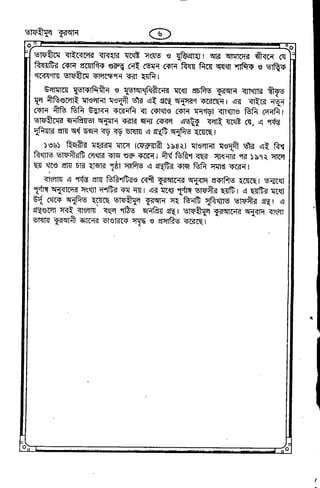 তাফহীমুল কুরআন
৬
তাফহীমে বাইবেলের ব্যবহার যথেষ্ট সংযত ও যুক্তিগ্রাহ্য। আর আমাদের জীবনে যে
বিষয়টির কোন প্রায়োগিক গুরুত্ব নেই তেমন কোন বিষয় নিয়ে অযথা শাব্দিক ও তাত্বিক
গবেষণায় তাফহীমে কালক্ষেপন করা হয়নি।
উলামায়ে মুতাকাদ্দিমীন ও মুতাআখ্খিরীনের মধ্যে প্রচলিত কুরআন ব্যাখ্যার স্বীকৃত
মূল নীতিগুলোই মাওলানা মওদূদী তাঁর এই গ্রন্থে অনুসরণ করেছেন। এর বাইরে নতুন
কোন নীতি তিনি উদ্ভাবন করেননি বা কোথাও কোন মনগড়া ব্যাখ্যাও তিনি দেননি।
তাফহীমের জনপ্রিয়তা অনুমান করার জন্য কেবল এতটুকু বলাই যথেষ্ট যে, এ পর্যন্ত
দুনিয়ার প্রায় অর্ধ ডজন বড় বড় ভাষায় এ গ্রন্থটি অনূদিত হয়েছে।
১৩৬১ হিজরীর মহররম মাসে (ফেব্রুয়ারী ১৯৪২) মাওলানা মওদূদী তাঁর এই বিশ্ব
বিখ্যাত তাফসীরটি লেখার কাজ শুরু করেন। দীর্ঘ তিরিশ বছর সাধনার পর ১৯৭২ সালে
ছয় খণ্ডে প্রায় চার হাজার পৃষ্ঠা সম্বলিত এ গ্রন্থটির কাজ তিনি সমাপ্ত করেন।
বাংলায় এ পর্যন্ত প্রায় তিরিশটিরও বেশী কুরআনের অনুবাদ প্রকাশিত হয়েছে। তন্মধ্যে
পূর্ণাঙ্গ অনুবাদের সংখ্যা দশটির কম নয়। এর মধ্যে পূর্ণাঙ্গ তাফসীর ছয়টি। এ ছয়টির মধ্যে
উর্দু থেকে অনূদিত হয়েছে তাফহীমুল কুরআন সহ তিনটি সুবিখ্যাত তাফসীর গ্রন্থ। এ
গ্রন্থগুলো সবই বাংলায় বহুল পঠিত জনপ্রিয় গ্রন্থ। তাফহীমুল কুরআনের অনুবাদ বাংলা
ভাষায় কুরআনী জ্ঞানের ভাণ্ডারকে সমৃদ্ধ ও প্রসারিত করেছে।